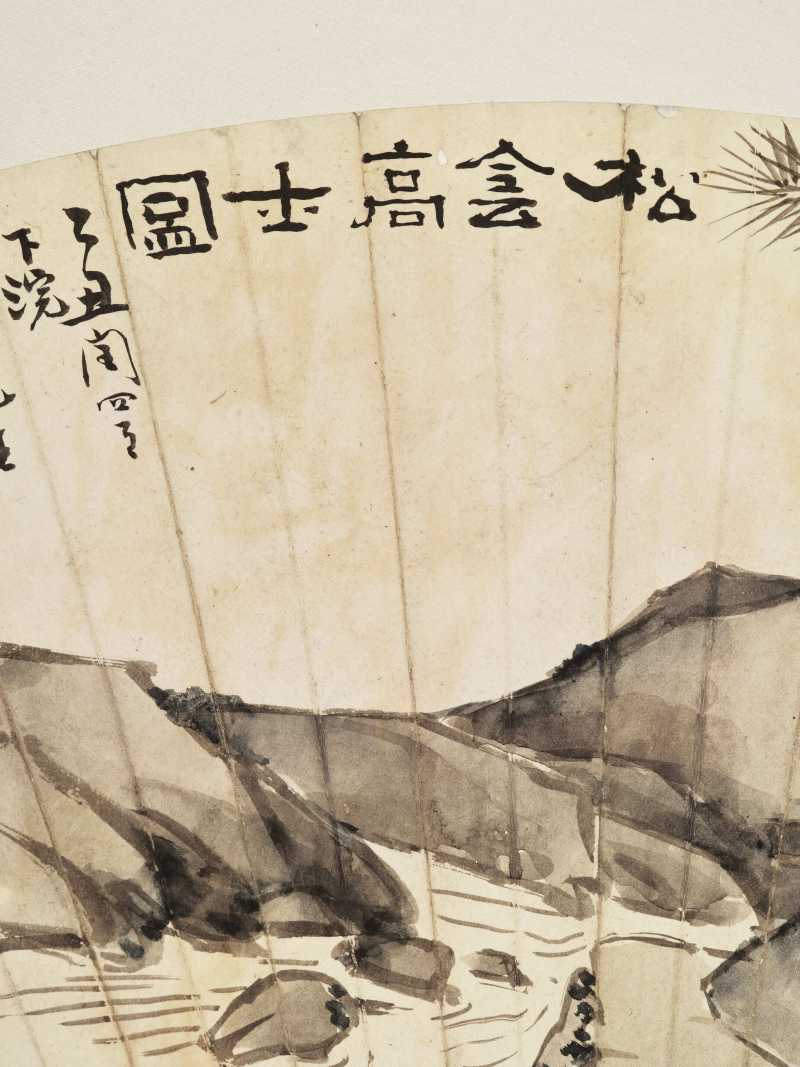 松侌高士圖
乙丑閏四月
下浣